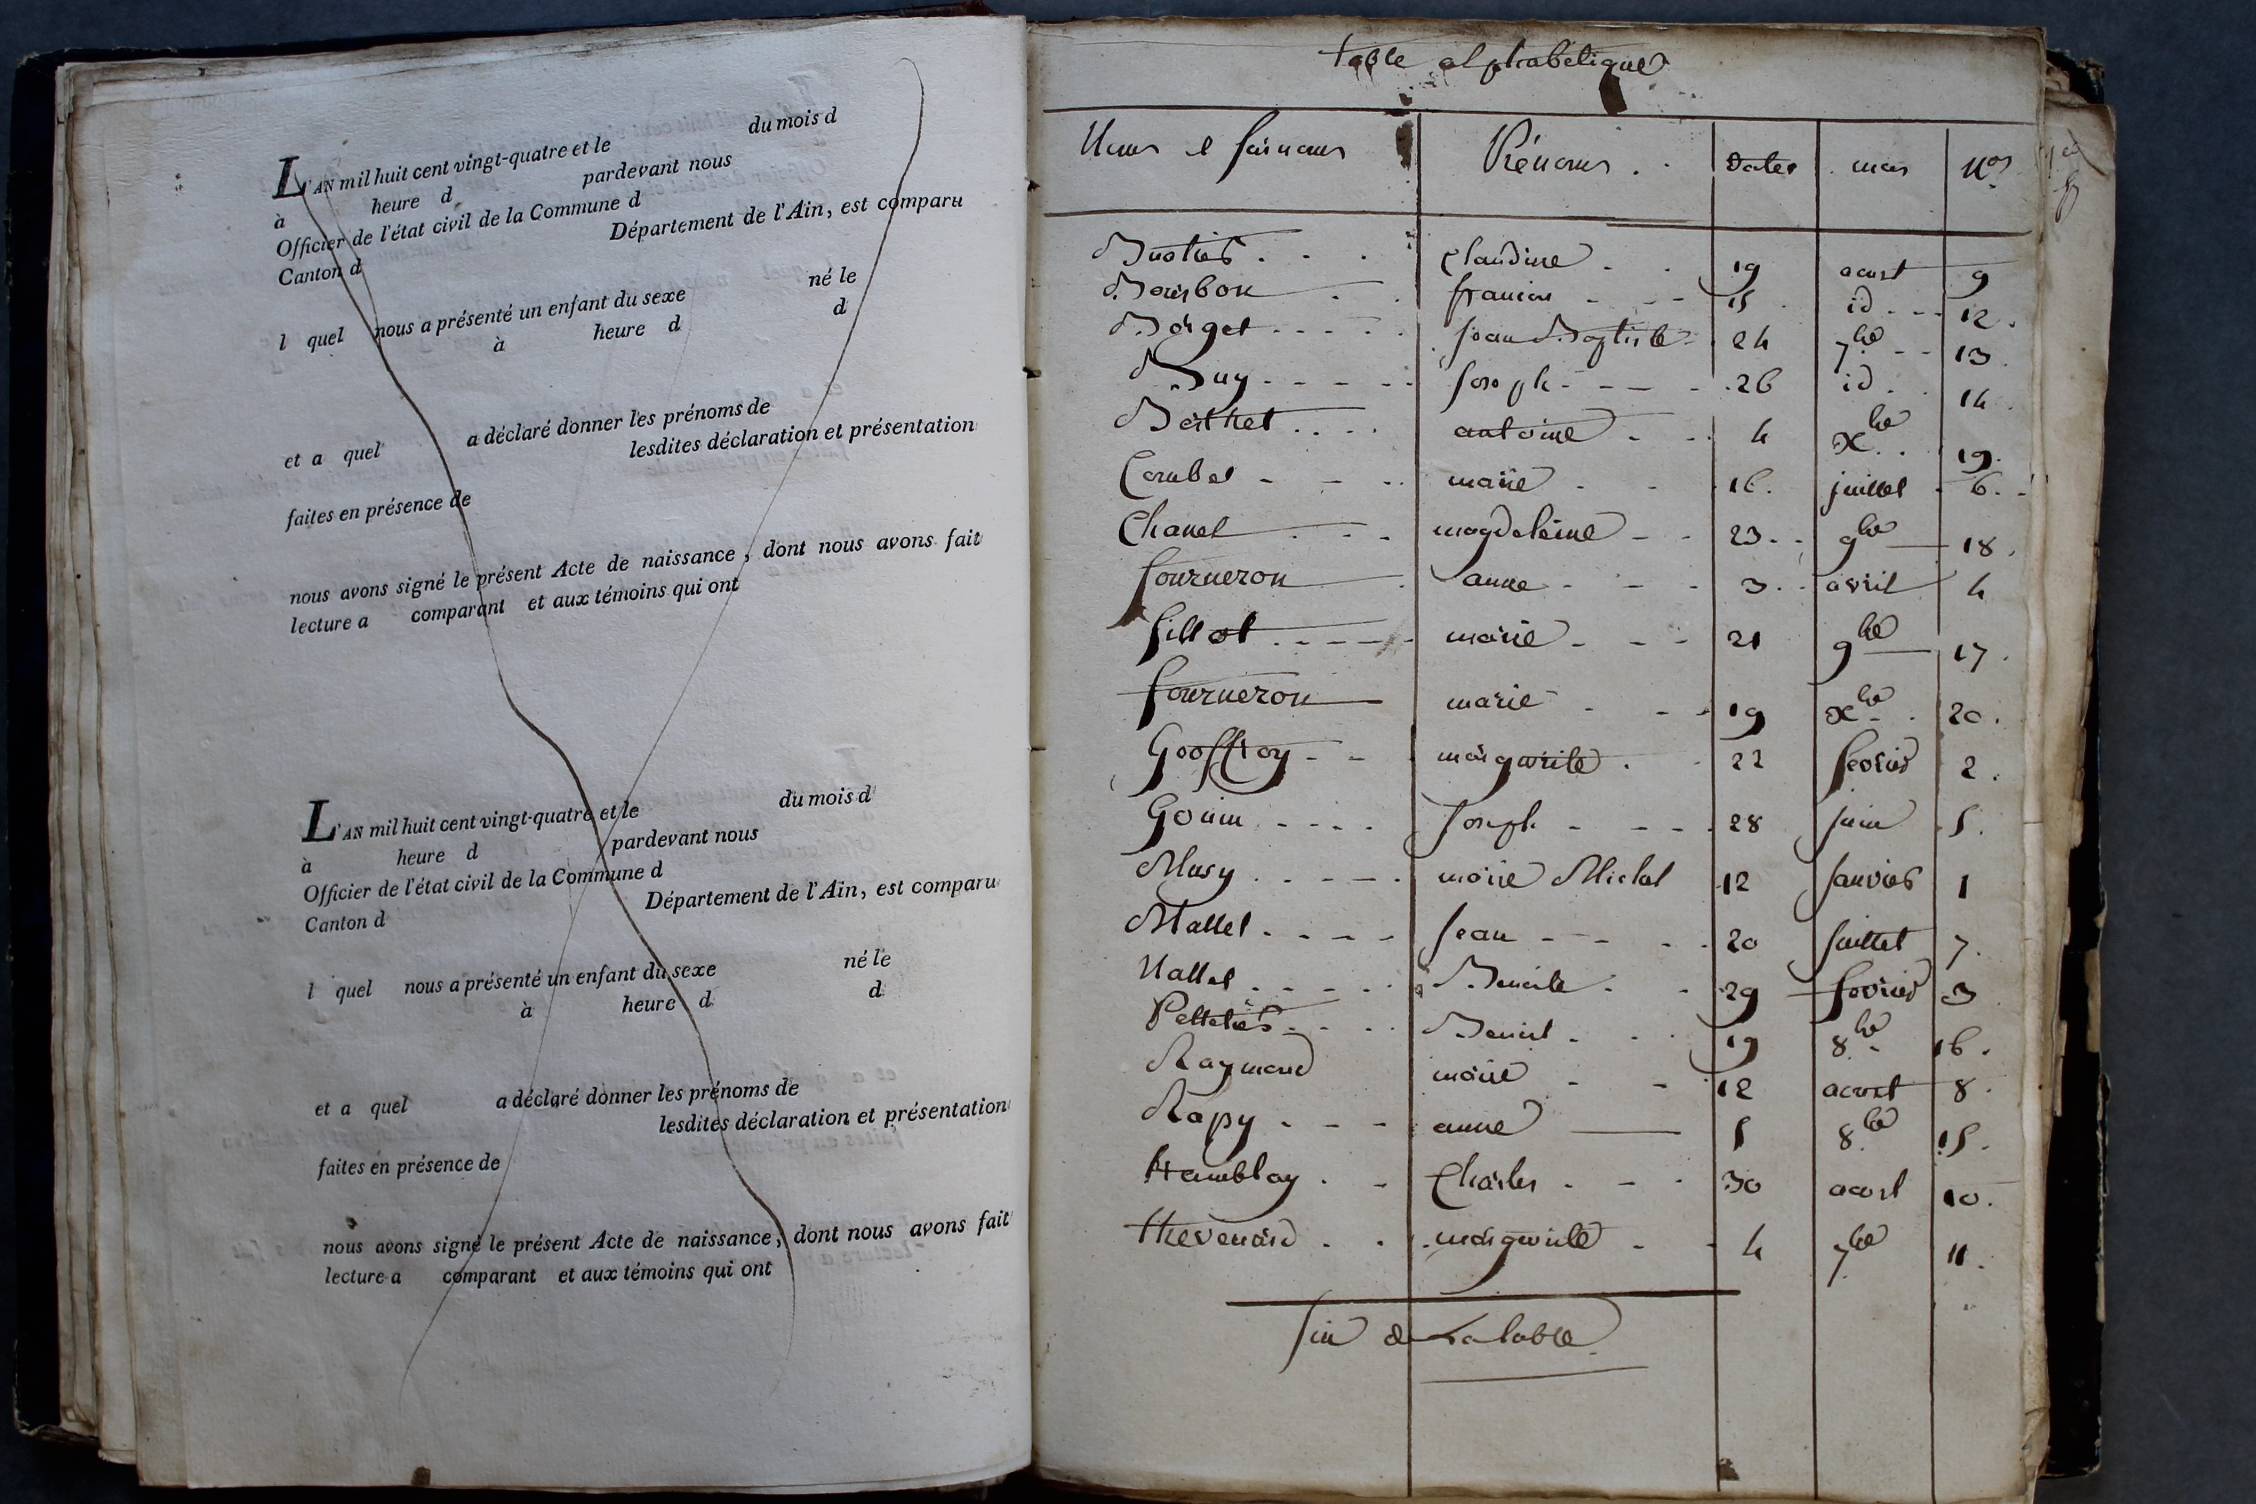 L'AN mil huit cent vingt-quatre et le du mois d
à heure d pardevant nous
Officier de l'état civil de la Commune d
Canton d Département de l'Ain, est comparu
l quel nous a présenté un enfant du sexe né le
à heure d d
et a quel a déclaré donner les prénoms de
lesdites déclaration et présentation
faites en présence de
nous avons signé le présent Acte de naissance, dont nous avons fait
lecture a comparant et aux témoins qui ont
L'AN mil huit cent vingt-quatre et le du mois d
à heure d pardevant nous
Officier de l'état civil de la Commune d
Canton d Département de l'Ain, est comparu
l quel nous a présenté un enfant du sexe né le
à heure d d
et a quel a déclaré donner les prénoms de
lesdites déclaration et présentation
faites en présence de
nous avons signé le présent Acte de naissance, dont nous avons fait
lecture a comparant et aux témoins qui ont
table alphabetique
Noms et surnoms Prénoms . Dates mois Nos
claudine 19 aoust 9
Bourbon 15 id 12
Borget Jean Baptiste 24 7bre 13
Buy Joseph 26 id 14
Berthet antoine 4 xbre 19
marie 16 juillet 6
Chanel magdeleine 23 9bre 18
fourneron anne 3 avril 4
fillot marie 21 9bre 17
fourneron marie 19 xbre 20
Geoffroy marguerite 22 fevrier 2
Gouin Joseph 28 juin 5
Musy marie 12 Janvier 1
Mallet Jean 20 Juillet 7
Nallet Benoite 29 fevrier 3
Pelletier Benoist 19 8bre 16
Raymond marie 12 aoust 8
Rapy anne 5 8bre 15
tramblay Charles 30 aoust 10
thevenard marguerite 4 7bre 11
fin de la table